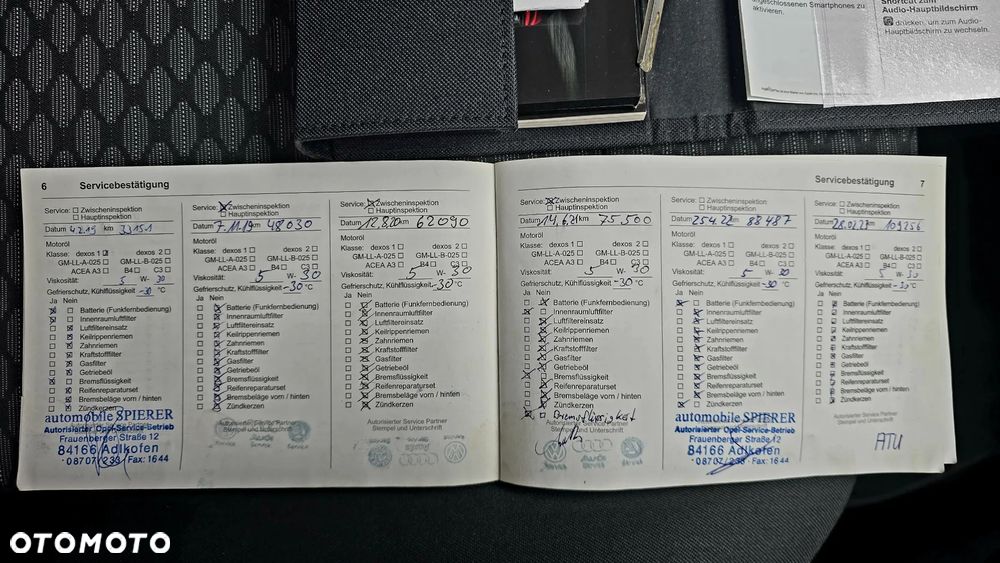 angeschlossenen Smartphones zu
aktivieren.
Shortcut zum
Audio-Hauptbildschirm
drücken, um zum Audio-
Hauptbildschirm zu wechseln.
6 Servicebestätigung
Service: Zwischeninspektion
Hauptinspektion
Datum 4.2.19 km 33151
Motoröl
Klasse: dexos 1 dexos 2
GM-LL-A-025 GM-LL-B-025
ACEA A3 B4 C3
Viskosität: 5 W- 30
Gefrierschutz, Kühlflüssigkeit -30 °C
Ja Nein
Batterie (Funkfernbedienung)
Innenraumluftfilter
Luftfiltereinsatz
Keilrippenriemen
Zahnriemen
Kraftstofffilter
Gasfilter
Getriebeöl
Bremsflüssigkeit
Reifenreparaturset
Bremsbeläge vorn / hinten
Zündkerzen
automobile SPIERER
Autorisierter Opel-Service-Betrieb
Frauenberger Straße 12
84166 Adlkofen
08707/233 · Fax: 1644
Service: Zwischeninspektion
Hauptinspektion
Datum 7.11.19 km 48030
Motoröl
Klasse: dexos 1 dexos 2
GM-LL-A-025 GM-LL-B-025
ACEA A3 B4 C3
Viskosität: 5 W- 30
Gefrierschutz, Kühlflüssigkeit -30 °C
Ja Nein
Batterie (Funkfernbedienung)
Innenraumluftfilter
Luftfiltereinsatz
Keilrippenriemen
Zahnriemen
Kraftstofffilter
Gasfilter
Getriebeöl
Bremsflüssigkeit
Reifenreparaturset
Bremsbeläge vorn / hinten
Zündkerzen
Autorisierter Service Partner
Stempel und Unterschrift
Service: Zwischeninspektion
Hauptinspektion
Datum 12.8.20 km 62090
Motoröl
Klasse: dexos 1 dexos 2
GM-LL-A-025 GM-LL-B-025
ACEA A3 B4 C3
Viskosität: 5 W- 30
Gefrierschutz, Kühlflüssigkeit -30 °C
Ja Nein
Batterie (Funkfernbedienung)
Innenraumluftfilter
Luftfiltereinsatz
Keilrippenriemen
Zahnriemen
Kraftstofffilter
Gasfilter
Getriebeöl
Bremsflüssigkeit
Reifenreparaturset
Bremsbeläge vorn / hinten
Zündkerzen
Autorisierter Service Partner
Stempel und Unterschrift
Servicebestätigung 7
Service: Zwischeninspektion
Hauptinspektion
Datum 14.6.21 km 75.500
Motoröl
Klasse: dexos 1 dexos 2
GM-LL-A-025 GM-LL-B-025
ACEA A3 B4 C3
Viskosität: 5 W- 30
Gefrierschutz, Kühlflüssigkeit -30 °C
Ja Nein
Batterie (Funkfernbedienung)
Innenraumluftfilter
Luftfiltereinsatz
Keilrippenriemen
Zahnriemen
Kraftstofffilter
Gasfilter
Getriebeöl
Bremsflüssigkeit
Reifenreparaturset
Bremsbeläge vorn / hinten
Zündkerzen
Bremsflüssigkeit
Autorisierter Service Partner
Stempel und Unterschrift
Service: Zwischeninspektion
Hauptinspektion
Datum 25.4.22 km 88487
Motoröl
Klasse: dexos 1 dexos 2
GM-LL-A-025 GM-LL-B-025
ACEA A3 B4 C3
Viskosität: 5 W- 30
Gefrierschutz, Kühlflüssigkeit -30 °C
Ja Nein
Batterie (Funkfernbedienung)
Innenraumluftfilter
Luftfiltereinsatz
Keilrippenriemen
Zahnriemen
Kraftstofffilter
Gasfilter
Getriebeöl
Bremsflüssigkeit
Reifenreparaturset
Bremsbeläge vorn / hinten
Zündkerzen
automobile SPIERER
Autorisierter Opel-Service-Betrieb
Frauenberger Straße 12
84166 Adlkofen
08707/233 · Fax: 1644
Service: Zwischeninspektion
Hauptinspektion
Datum km 109256
Motoröl
Klasse: dexos 1 dexos 2
GM-LL-A-025 GM-LL-B-025
ACEA A3 B4 C3
Viskosität: 5 W- 30
Gefrierschutz, Kühlflüssigkeit -30 °C
Ja Nein
Batterie (Funkfernbedienung)
Innenraumluftfilter
Luftfiltereinsatz
Keilrippenriemen
Zahnriemen
Kraftstofffilter
Gasfilter
Getriebeöl
Bremsflüssigkeit
Reifenreparaturset
Bremsbeläge vorn / hinten
Zündkerzen
Autorisierter Service Partner
Stempel und Unterschrift
ATU
OTOMOTO